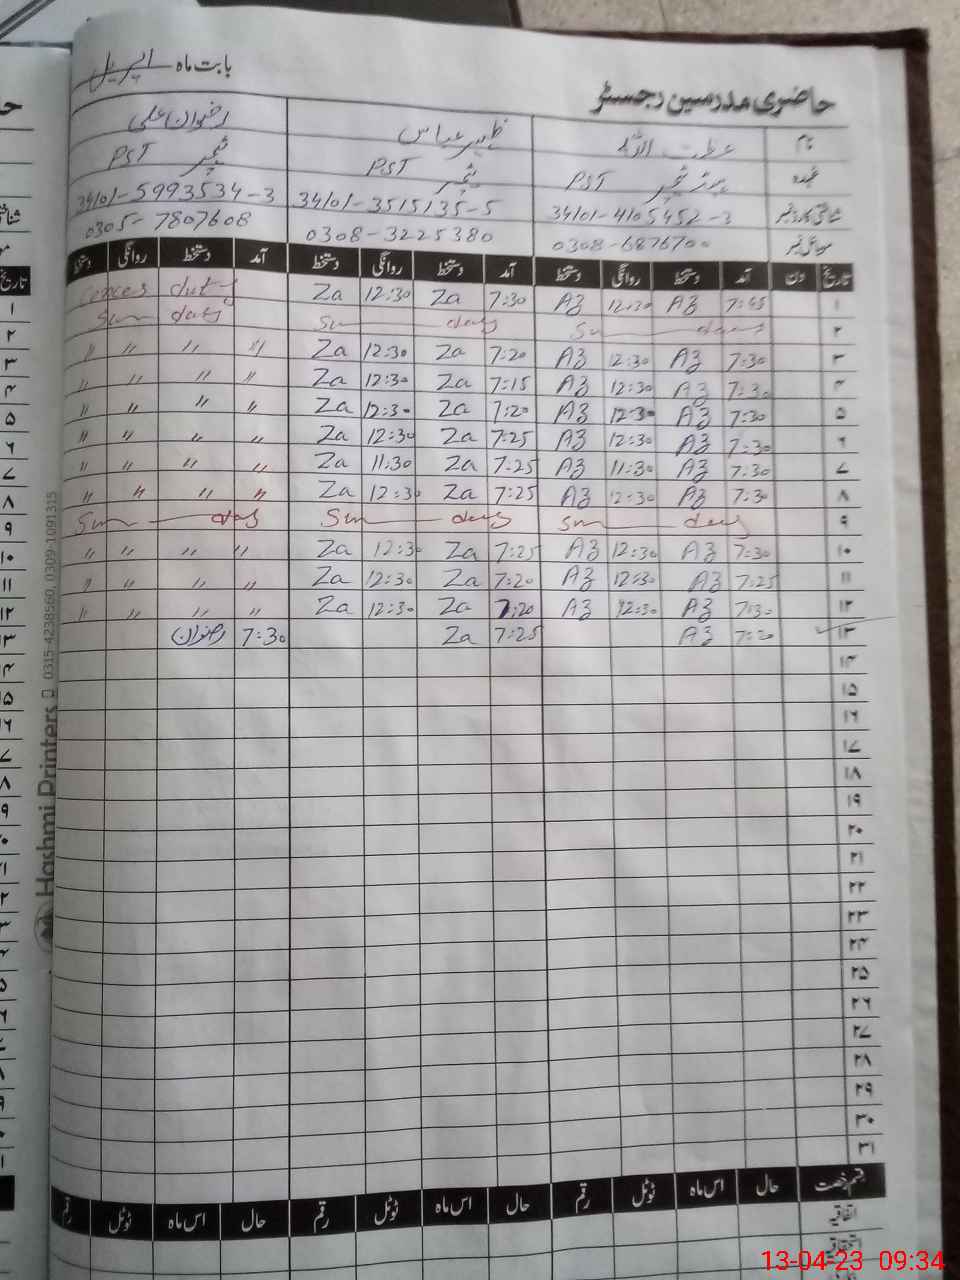 بابت ماہ اپریل
حاضری مدرسین رجسٹر
نام عظمت اللہ ظہیر عباس رضوان علی
عہدہ ٹیچر PST ٹیچر PST ٹیچر PST
شناختی کارڈ نمبر 34101-4105452-3 34101-3515135-5 34101-5993534-3
موبائل نمبر 0308-6876700 0308-3225380 0305-7807608
تاریخ دن آمد دستخط روانگی دستخط آمد دستخط روانگی دستخط آمد دستخط روانگی دستخط
۱ 7:45 AZ 12:30 AZ 7:30 Za 12:30 Za duty
۲ Sunday Sunday Sunday
۳ 7:30 AZ 12:30 AZ 7:20 Za 12:30 Za " " " "
۴ 7:30 AZ 12:30 AZ 7:15 Za 12:30 Za " " " "
۵ 7:30 AZ 12:30 AZ 7:20 Za 12:30 Za " " " "
۶ 7:30 AZ 12:30 AZ 7:25 Za 12:30 Za " " " "
۷ 7:30 AZ 11:30 AZ 7:25 Za 11:30 Za " " " "
۸ 7:30 AZ 12:30 AZ 7:25 Za 12:30 Za " " " "
۹ Sunday Sunday Sunday
۱۰ 7:30 AZ 12:30 AZ 7:25 Za 12:30 Za " " " "
۱۱ 7:25 AZ 12:30 AZ 7:20 Za 12:30 Za " " " "
۱۲ 7:30 AZ 12:30 AZ 7:20 Za 12:30 Za " " " "
۱۳ 7:20 AZ 7:25 Za 7:30 رضوان
۱۴
۱۵
۱۶
۱۷
۱۸
۱۹
۲۰
۲۱
۲۲
۲۳
۲۴
۲۵
۲۶
۲۷
۲۸
۲۹
۳۰
۳۱
قسم رخصت حال اس ماہ ٹوٹل رقم حال اس ماہ ٹوٹل رقم حال اس ماہ ٹوٹل رقم
اتفاقیہ
استحقاقیہ
Hashmi Printers 0315-4238560, 0309-1091315
13-04-23 09:34